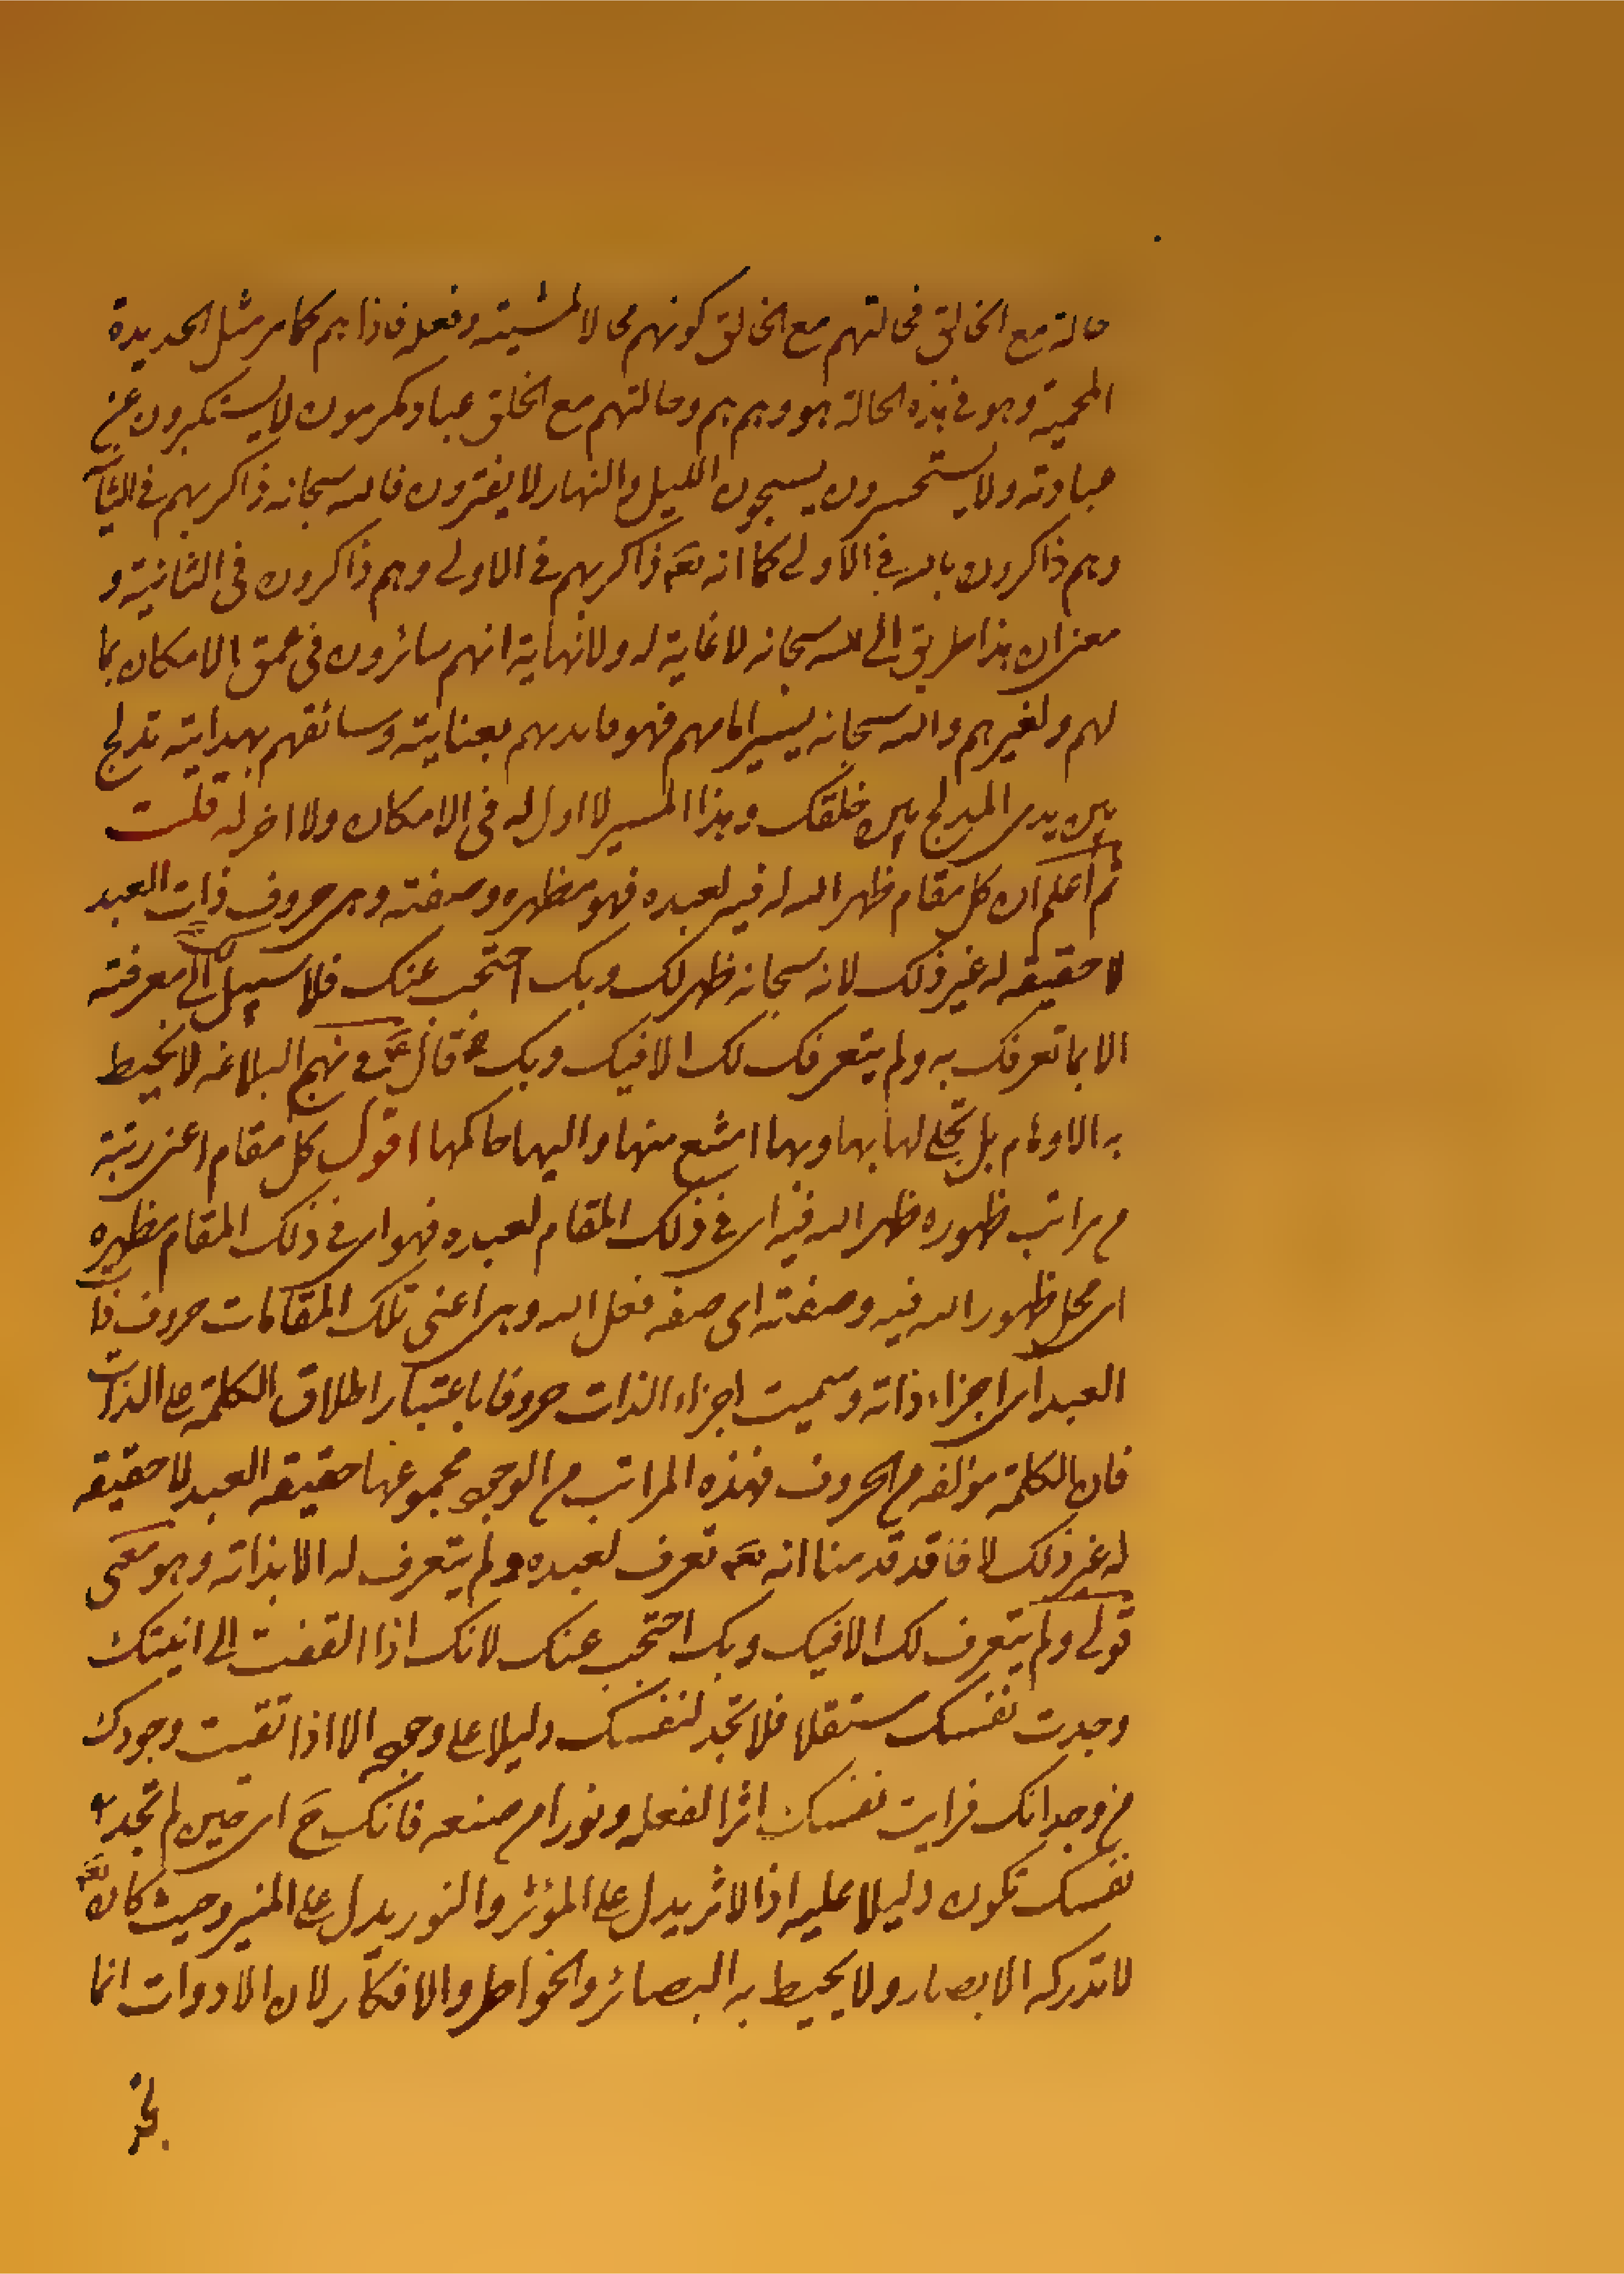 حالة مع الخالق فحالتهم مع الخالق كونهم محالا لمشيته وفعله فاذا هم كما مر مثل الحديدة
المحمية وهو فى هذه الحالة هو وهم هم وحالتهم مع الخلق عباد مكرمون لا يستكبرون عن
عبادته ولا يستحسرون يسبحون الليل والنهار لا يفترون فالله سبحانه ذاكر بهم فى
وهم ذاكرون بالله فى الاولى كما انه تع ذاكر بهم فى الاولى وهم ذاكرون فى الثانية و
معنى ان هذا طريق الى الله سبحانه لا غاية له ولا نهاية انهم سائرون فى عمق الامكان بما
لهم ولغيرهم والله سبحانه يسير امامهم فهو بعنايته وسائقهم بهدايته تدلج
بين يدى المدلج بين خلقك وهذا المسير لا اول له فى الامكان ولا اخر له قلت
ثم اعلم ان كل مقام ظهر الله له فيه لعبده فهو مظهره وصفته وهى حروف ذات العبد
لا حقيقه له غير ذلك لانه سبحانه ظهر لك بك وبك احتجب عنك فلا سبيل الى معرفته
الا بما تعرف به ولم يتعرف لك الا فيك وبك قال ع فى نهج البلاغه لا تحيط
به الاوهام بل تجلى لها بها وبها امتنع منها واليها حاكمها اقول كل مقام اعنى رتبة
من مراتب ظهوره ظهر الله فيه اى فى ذلك المقام لعبده فهو اى فى ذلك المقام مظهره
اى محل ظهور الله فيه وصفته اى صفه فعل الله وهى اعنى تلك المقامات حروف ذات
العبد اى اجزاء ذاته وسميت اجزاء الذات حروفا باعتبار اطلاق الكلمة على الذات
فان الكلمة مؤلفه من الحروف فهذه المراتب من الوجود مجموعها حقيقه العبد لا حقيقه
له غير ذلك لانا قد قدمنا انه تع تعرف لعبده ولم يتعرف له الا بذاته وهو معنى
قولى ولم يتعرف لك الا فيك وبك احتجب عنك لانك اذا التفت الى انيتك
وجدت نفسك مستقلا فلا تجد لنفسك دليلا على وجوده الا اذا نفيت وجودك
من وجدانك فرايت نفسك اثرا لفعله ونورا من صنعه فانك ح اى حين لم تجد
نفسك تكون دليلا عليه اذ الاثر يدل على المؤثر والنور يدل على المنير وحيث كان تع
لا تدركه الابصار ولا يحيط به البصائر والخواطر والافكار لان الادوات انما